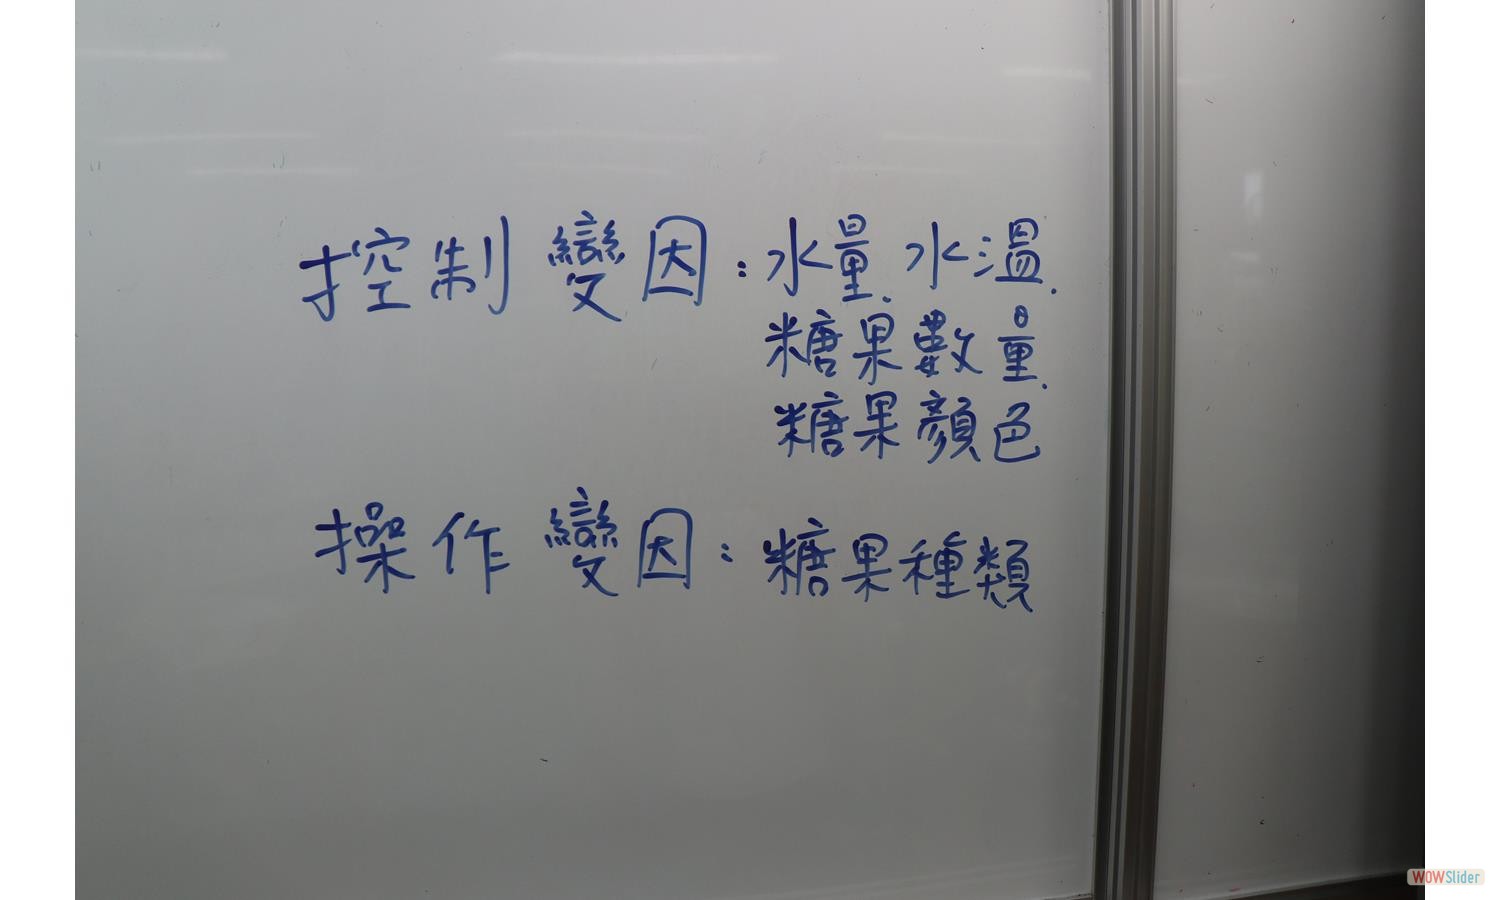 控制變因：水量.水溫.
糖果數量.
糖果顏色
操作變因：糖果種類
WOWSlider